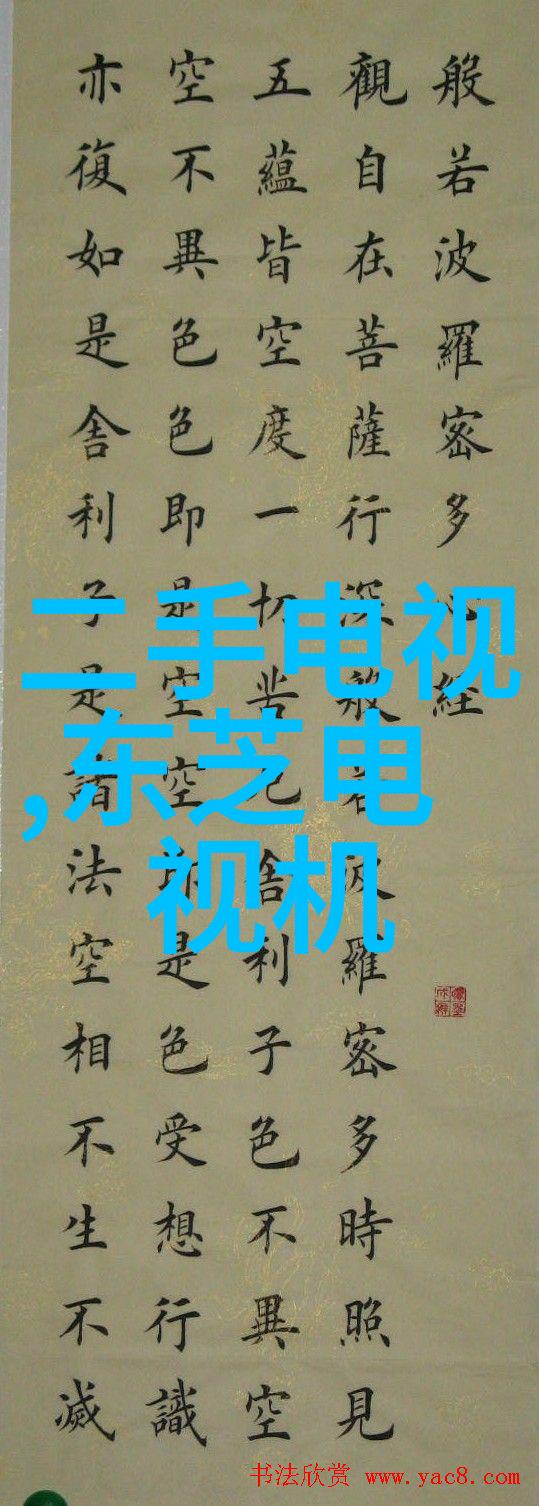 般若波羅密多心經
觀自在菩薩行深般若波羅密多時照見
五蘊皆空度一切苦厄舍利子色不異空
空不異色色即是空空即是色受想行識
亦復如是舍利子是諸法空相不生不滅
二手电视
,东芝电
视机
书法欣赏 www.yac8.com